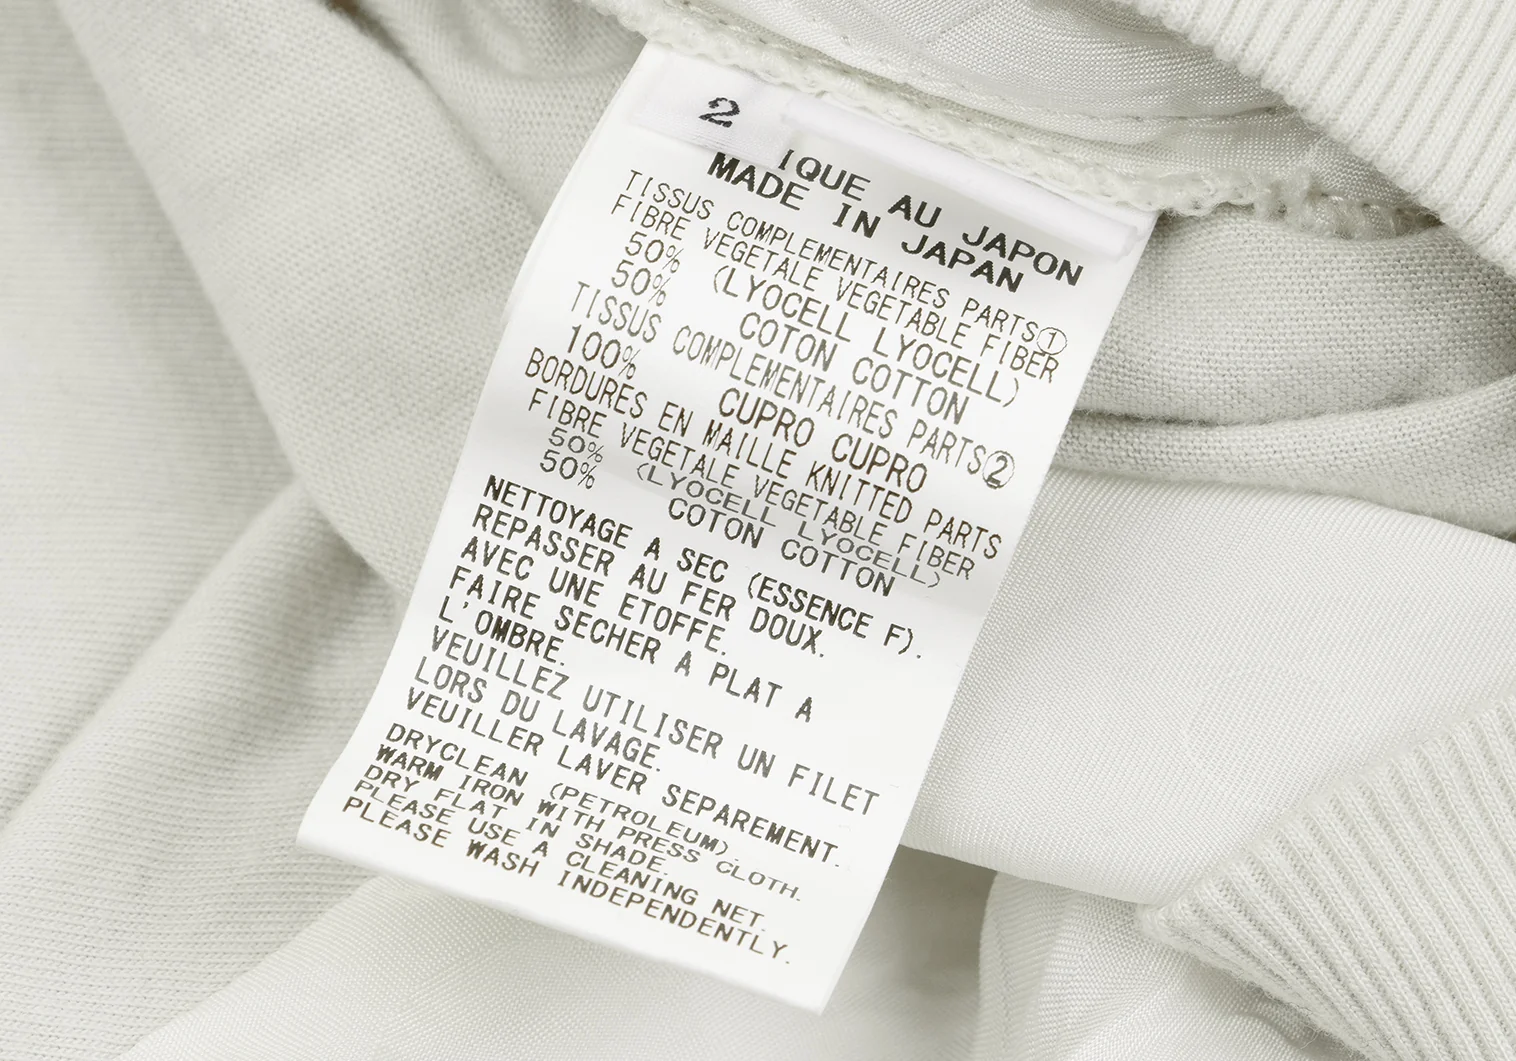 2
IQUE AU JAPON
MADE IN JAPAN
TISSUS COMPLEMENTAIRES PARTS①
FIBRE VEGETALE VEGETABLE FIBER
50% (LYOCELL LYOCELL)
50% COTON COTTON
TISSUS COMPLEMENTAIRES PARTS②
100% CUPRO CUPRO
BORDURES EN MAILLE KNITTED PARTS
FIBRE VEGETALE VEGETABLE FIBER
50% (LYOCELL LYOCELL)
50% COTON COTTON
NETTOYAGE A SEC (ESSENCE F).
REPASSER AU FER DOUX.
AVEC UNE ETOFFE.
FAIRE SECHER A PLAT A
L'OMBRE.
VEUILLEZ UTILISER UN FILET
LORS DU LAVAGE.
VEUILLER LAVER SEPAREMENT.
DRYCLEAN (PETROLEUM).
WARM IRON WITH PRESS CLOTH.
DRY FLAT IN SHADE.
PLEASE USE A CLEANING NET.
PLEASE WASH INDEPENDENTLY.